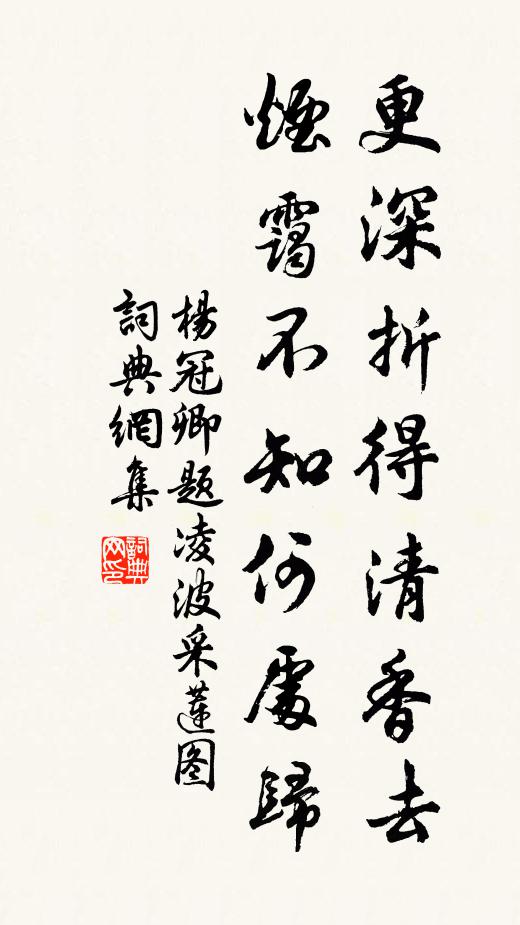 更深折得清香去
煙靄不知何處歸
楊冠卿题凌波采莲图
詞典網集
詞典網印